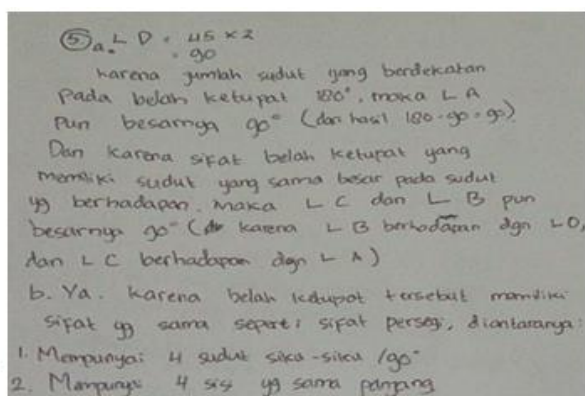 ⑤ a. ∠ D = 45 × 2
= 90
Karena jumlah sudut yang berdekatan
pada belah ketupat 180°, maka ∠ A
pun besarnya 90° (dari hasil 180 - 90 = 90)
Dan karena sifat belah ketupat yang
memiliki sudut yang sama besar pada sudut
yg berhadapan. maka ∠ C dan ∠ B pun
besarnya 90° (karena ∠ B berhadapan dgn ∠ D,
dan ∠ C berhadapan dgn ∠ A)
b. Ya. Karena belah ketupat tersebut memiliki
sifat yg sama seperti sifat persegi, diantaranya:
1. Mempunyai 4 sudut siku-siku / 90°
2. Mempunyai 4 sisi yg sama panjang